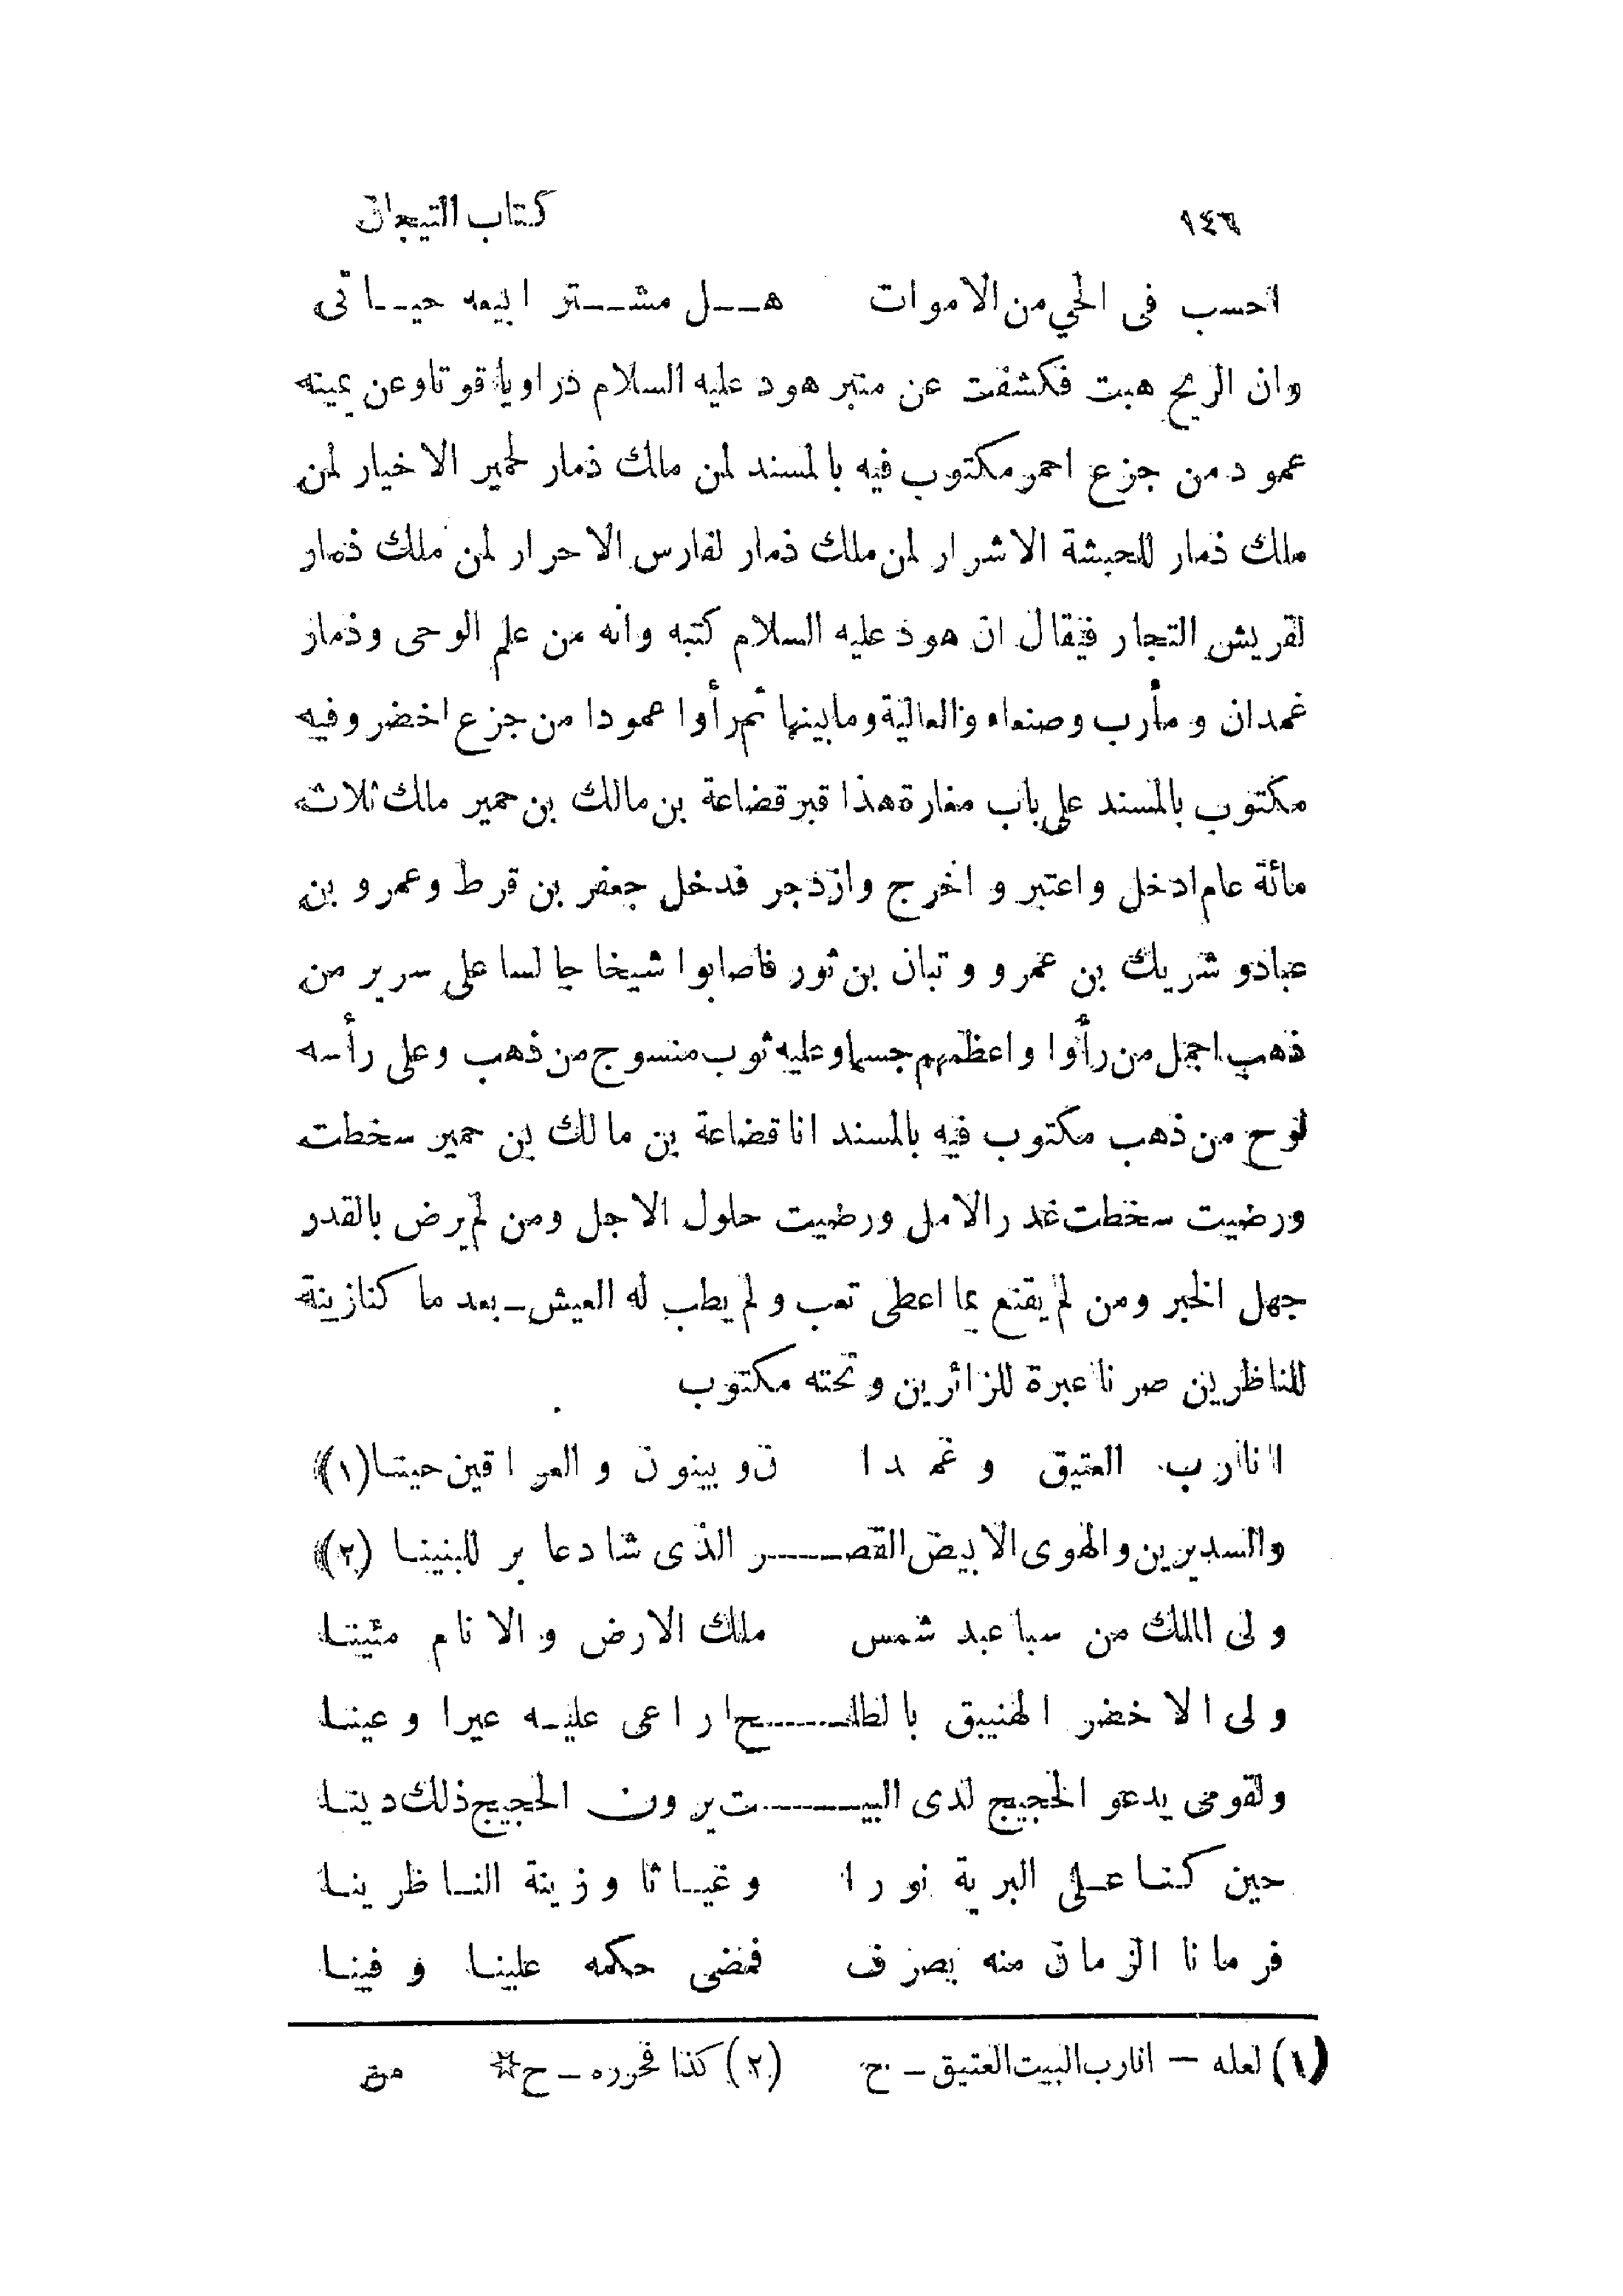 ١٤٦ كتاب التيجان
احسب فى الحي من الاموات هـــل مشـــتر ابيعه حيـــاتى
وان الريح هبت فكشفت عن منبر هود عليه السلام ذراويا قوتاوعن يمينه
عمود من جزع احمر مكتوب فيه بالمسند لمن مالك ذمار لحمير الاخيار لمن
ملك ذمار للحبشة الاشرار لمن ملك ذمار لفارس الاحرار لمن ملك ذمار
لقريش التجار فيقال ان هود عليه السلام كتبه وانه من علم الوحى وذمار
غمدان و مأرب وصنعاء والعالية ومابينها ثم رأوا عمودا من جزع اخضر وفيه
مكتوب بالمسند على باب مغارة هذا قبر قضاعة بن مالك بن حمير ملك ثلاث
مائة عام ادخل واعتبر و اخرج وازدجر فدخل جعفر بن قرط وعمرو بن
عبادو شريك بن عمرو و تبان بن ثور فاصابوا شيخا جالسا على سرير من
ذهب اجمل من رأوا واعظمهم جسما وعليه ثوب منسوج من ذهب وعلى رأسه
لوح من ذهب مكتوب فيه بالمسند انا قضاعة بن مالك بن حمير سخطت
ورضيت سخطت غدر الامل ورضيت حلول الاجل ومن لم يرض بالقدر
جهل الخبر ومن لم يقنع بما اعطى تعب و لم يطب له العيش ــ بعد ما كنا زينة
للناظرين صرنا عبرة للزائرين و تحته مكتوب
انا رب العتيق و غمدا ن و بينون و العراقين حينــا (١)
والسديرين والهوى الابيض القصـــر الذى شادعا بر للبنينــا (٢)
ولى الملك من سبا عبد شمس ملك الارض و الانام مئينــا
ولى الاخضر الهنيبق بالطلـــح اراعى عليــه عيرا وعينــا
ولقومى يدعو الحجيج لدى البيـــت يرون الحجيج ذلك دينــا
حين كنــا علـى البرية نورا وغيــاثا وزينة النــاظرينــا
فرمانا الزمان منه بصرف فمضى حكمه علينــا وفينــا
(١) لعله — انا رب البيت العتيق ــ ح (٢) كذا فحرره ــ ح ☆ من